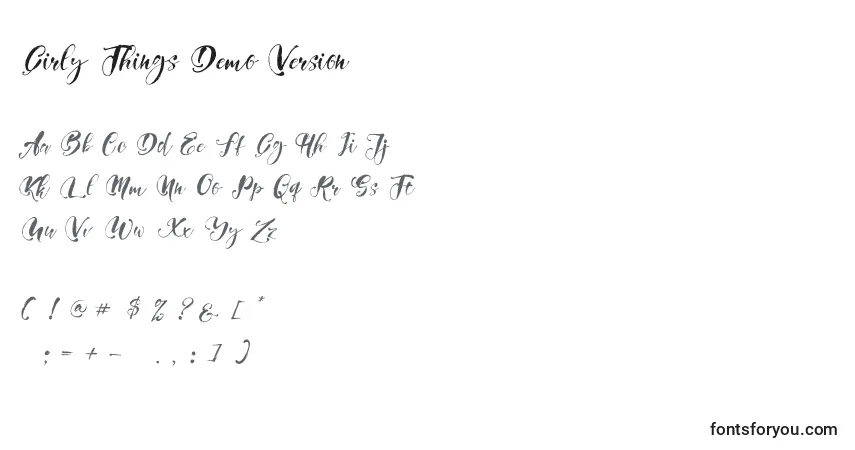 Girly Things Demo Version
Aa Bb Cc Dd Ee Ff Gg Hh Ii Jj
Kk Ll Mm Nn Oo Pp Qq Rr Ss Tt
Uu Vv Ww Xx Yy Zz
( ! @ # $ % ? & [ *
; = + - . , : ] )
fontsforyou.com